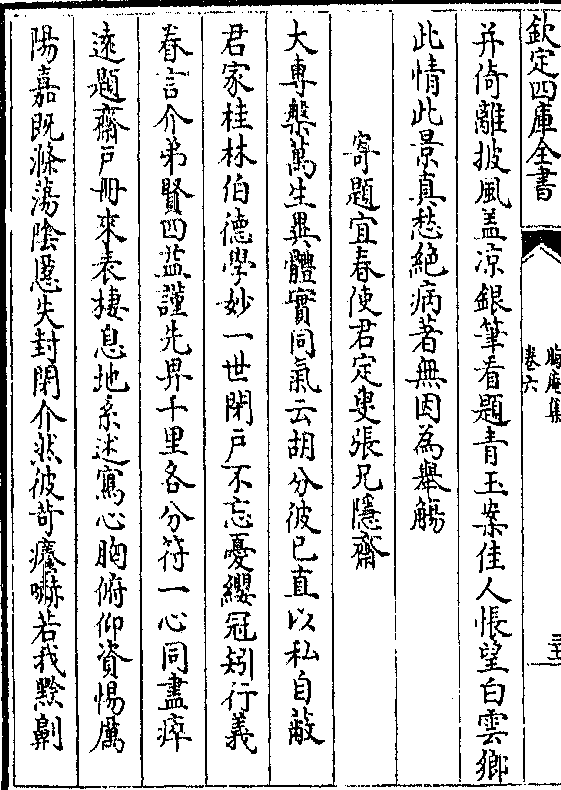 欽定四庫全書
晦庵集
卷六
并倚離披風盖凉銀筆看題青玉案佳人悵望白雲鄉
此情此景真愁絶病著無因為舉觴
寄題宜春使君定叟張兄隱齋
大専槃萬生異體實同氣云胡分彼已直以私自蔽
君家桂林伯德學妙一世閉戸不忘憂纓冠矧行義
眷言介弟賢四益謹先畀千里各分符一心同盡瘁
逺題齋戸冊來表棲息地系述寫心胸俯仰資惕厲
陽嘉既滌蕩隂慝失封閉介然彼苛癢嚇若我黥劓